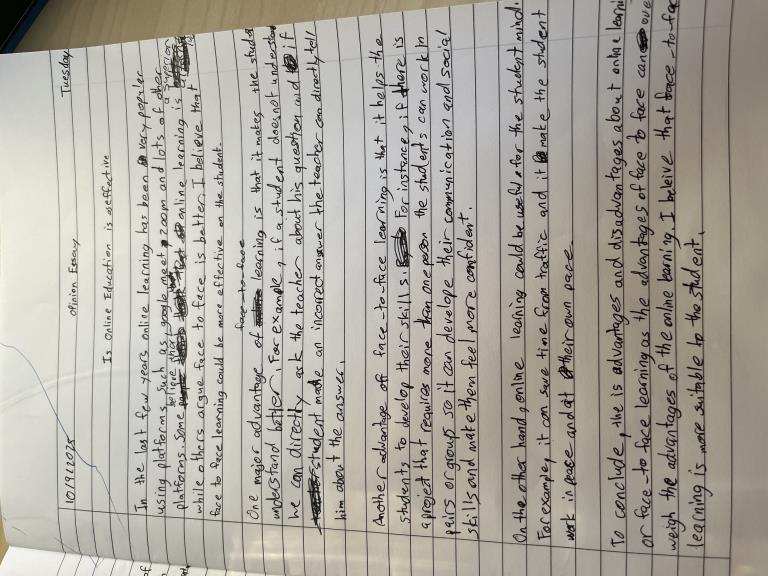 10/9/2025 opinion Essay Tuesday
Is Online Education is effective
In the last few years online learning has been very populer
using platforms such as google meet, zoom and lots of other
platforms. Some believe that online learning is a superior
while others argue face to face is better. I believe that
face to face learning could be more effective on the student.
One major advantage of face-to-face learning is that it makes the stude
understand better. For example, if a student does not understan
he can directly ask the teacher about his question and if
student made an incorrect answer the teacher can directly tell
him about the answer.
Another advantage off face-to-face learning is that it helps the
students to develop their skills. For instance, if there is
a project that requires more than one person the student's can work in
pairs or groups so it can develope their communication and social
skills and make them feel more confident.
On the other hand, online learning could be useful for the student mind.
For example, it can save time from traffic and it make the student
work in peace and at their own pace.
To conclude, the is advantages and disadvantages about online learni
or face-to face learning as the advantages of face to face can over
weigh the advantages of the online learning. I beleive that face-to-fac
learning is more suitable to the student.